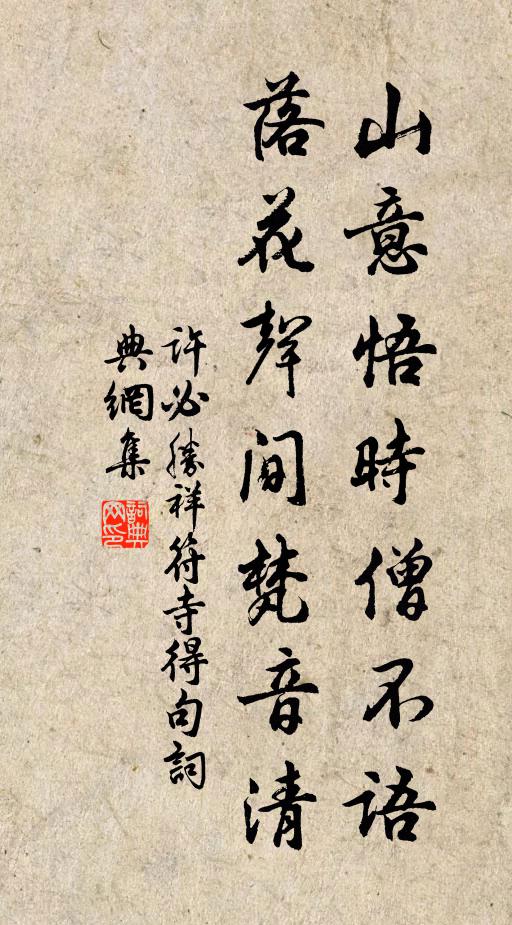 山意悟時僧不語
落花聲間梵音清
許必勝祥符寺得句詞
典網集
詞典網印